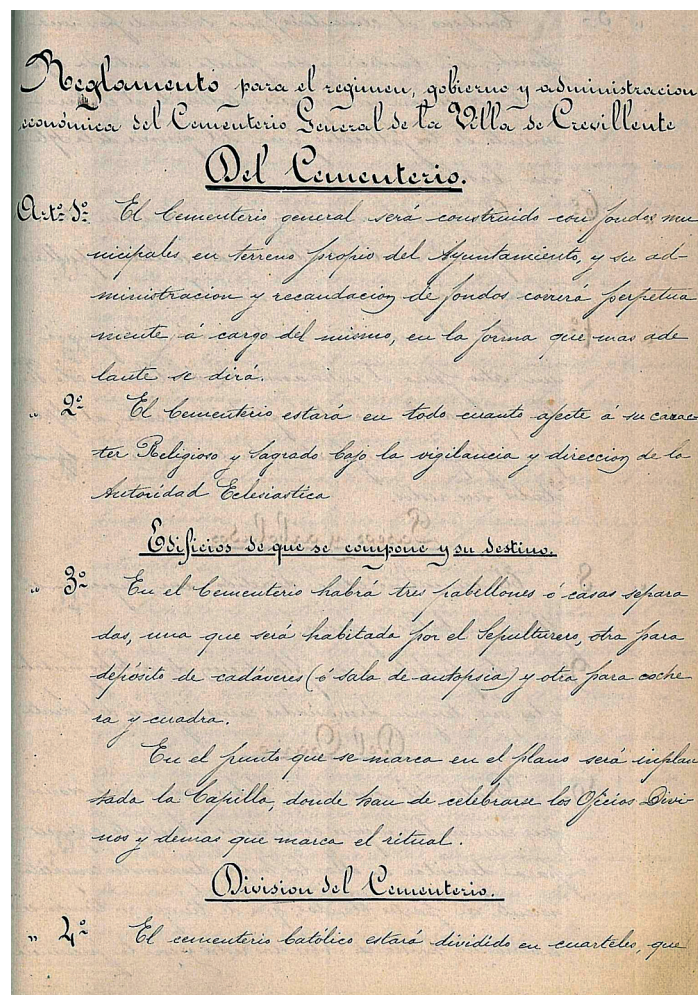 Reglamento para el regimen, gobierno y administracion
económica del Cementerio General de la Villa de Crevillente
Del Cementerio.
Art.º 1º El Cementerio general será construido con fondos mu
nicipales en terreno propio del Ayuntamiento, y su ad-
ministracion y recaudacion de fondos correrá perpetua
mente á cargo del mismo, en la forma que mas ade
lante se dirá.
" 2º El Cementerio estará en todo cuanto afecte á su carac
ter Religioso y Sagrado bajo la vigilancia y direccion de la
Autoridad Eclesiastica
Edificios de que se compone y su destino.
" 3º En el Cementerio habrá tres pabellones ó casas separa
das, una que será habitada por el Sepulturero, otra para
depósito de cadáveres (ó sala de autopsia) y otra para coche
ra y cuadra.
En el punto que se marca en el plano será implan
tada la Capilla, donde han de celebrarse los Oficios Divi
nos y demas que marca el ritual.
Division del Cementerio.
" 4º El cementerio Católico estará dividido en cuarteles, que